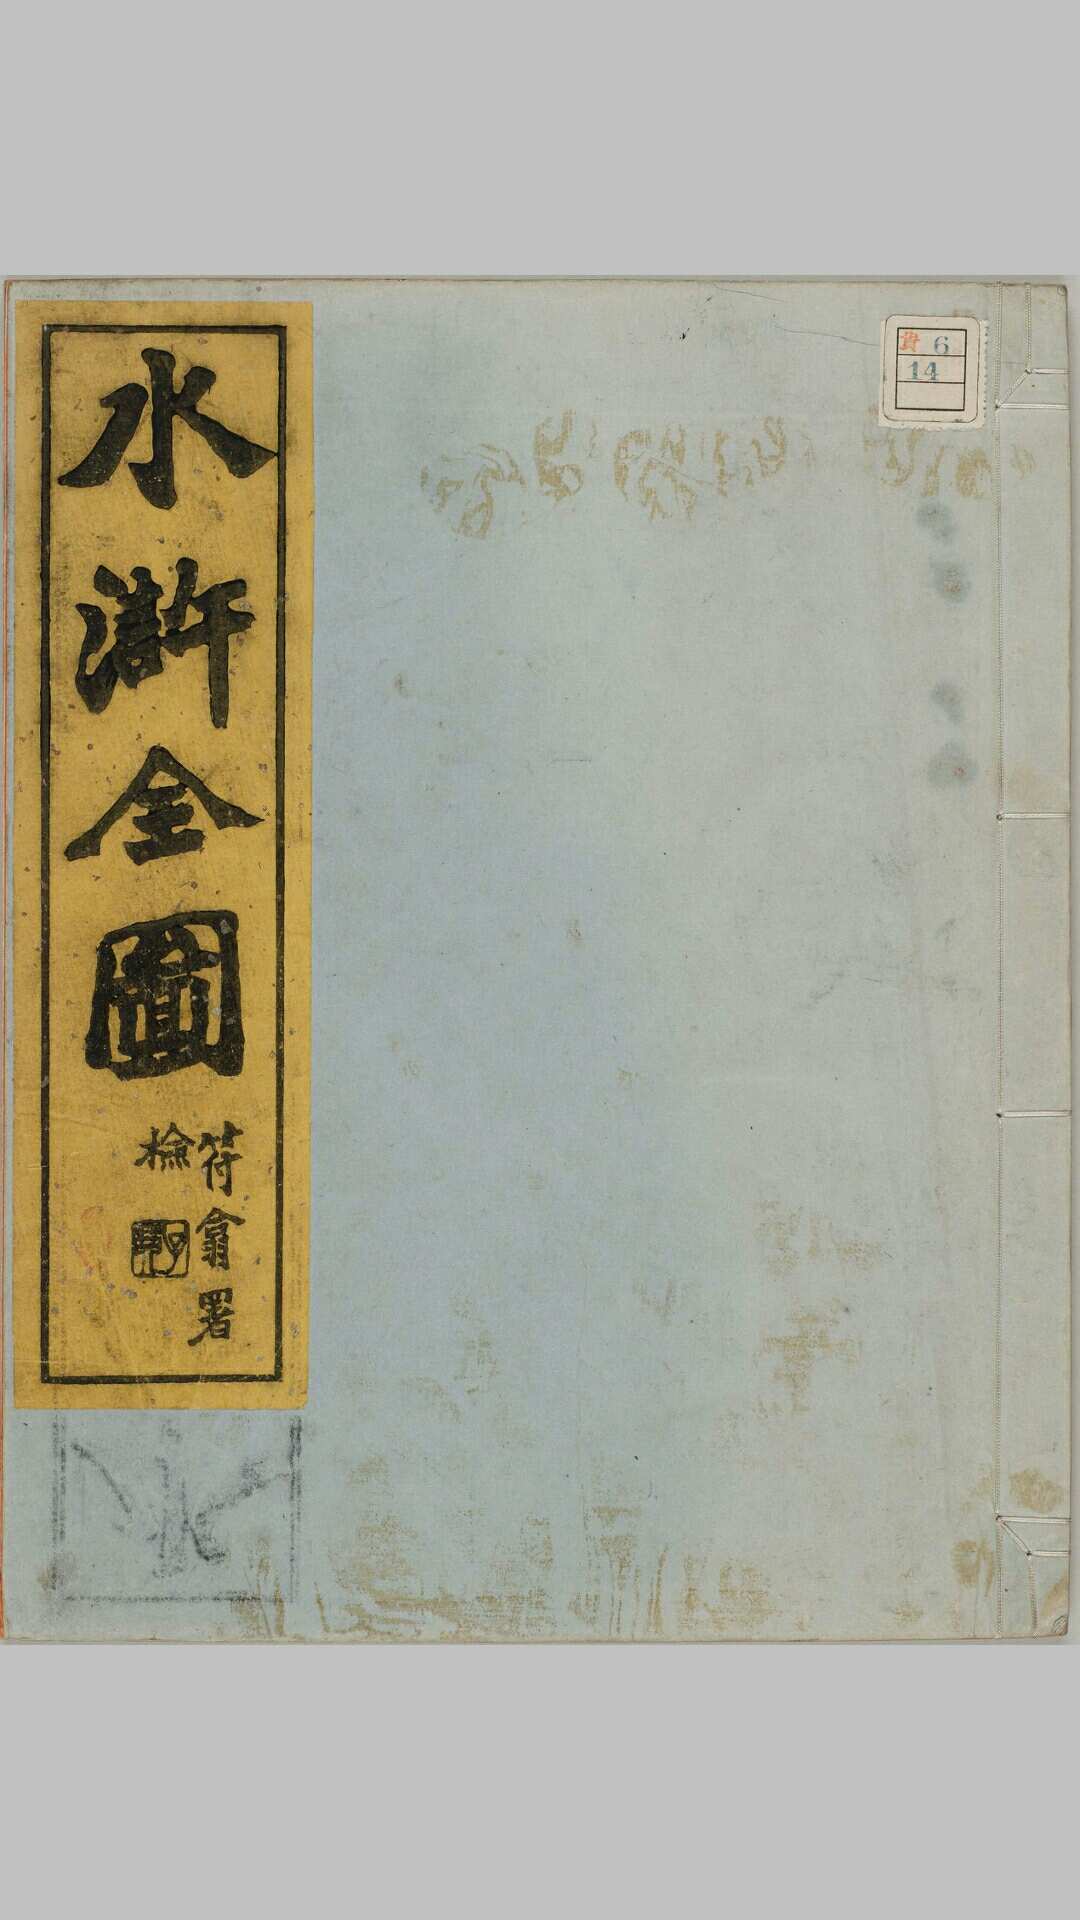 水滸全圖
符翕署
檢
貴 6
14